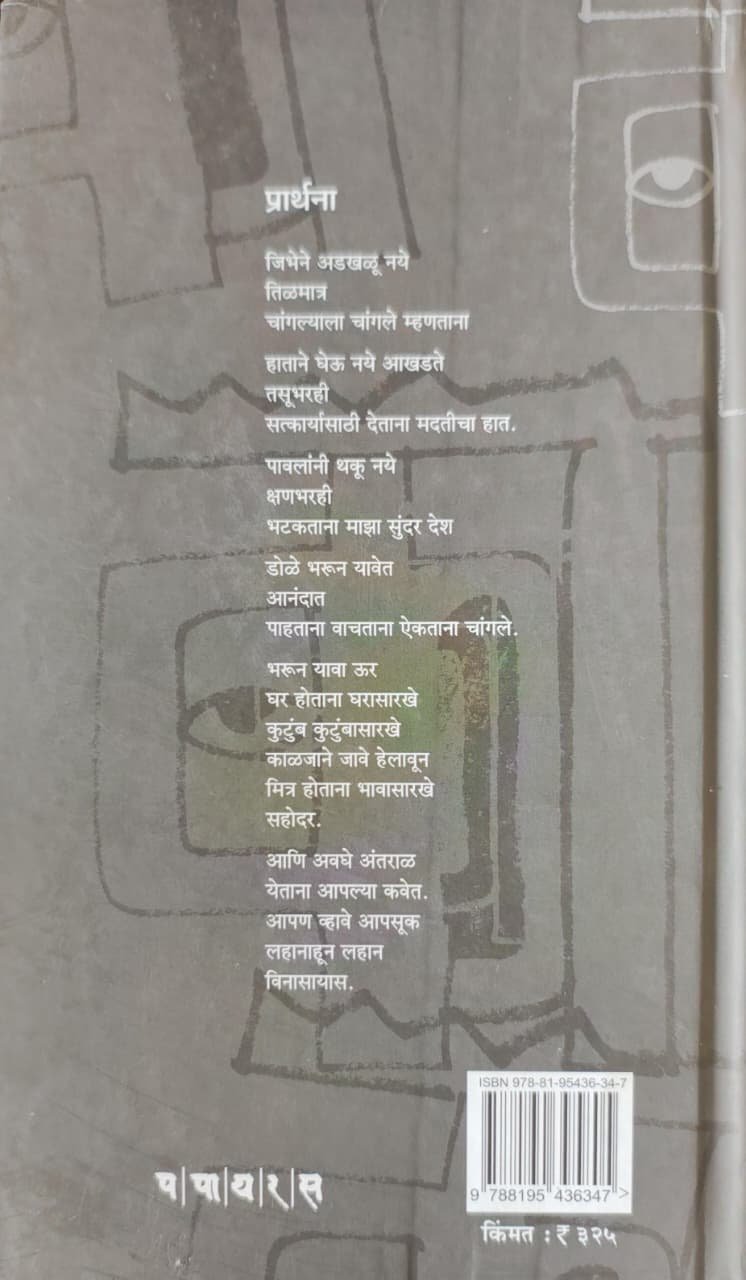 प्रार्थना
जिभेने अडखळू नये
तिळमात्र
चांगल्याला चांगले म्हणताना
हाताने घेऊ नये आखडते
तसूभरही
सत्कार्यासाठी देताना मदतीचा हात.
पावलांनी थकू नये
क्षणभरही
भटकताना माझा सुंदर देश
डोळे भरून यावेत
आनंदात
पाहताना वाचताना ऐकताना चांगले.
भरून यावा ऊर
घर होताना घरासारखे
कुटुंब कुटुंबासारखे
काळजाने जावे हेलावून
मित्र होताना भावासारखे
सहोदर.
आणि अवघे अंतराळ
येताना आपल्या कवेत.
आपण व्हावे आपसूक
लहानाहून लहान
विनासायास.
ISBN 978-81-95436-34-7
9 788195 436347 >
प|पा|य|र|स
किंमत : ₹ ३२५